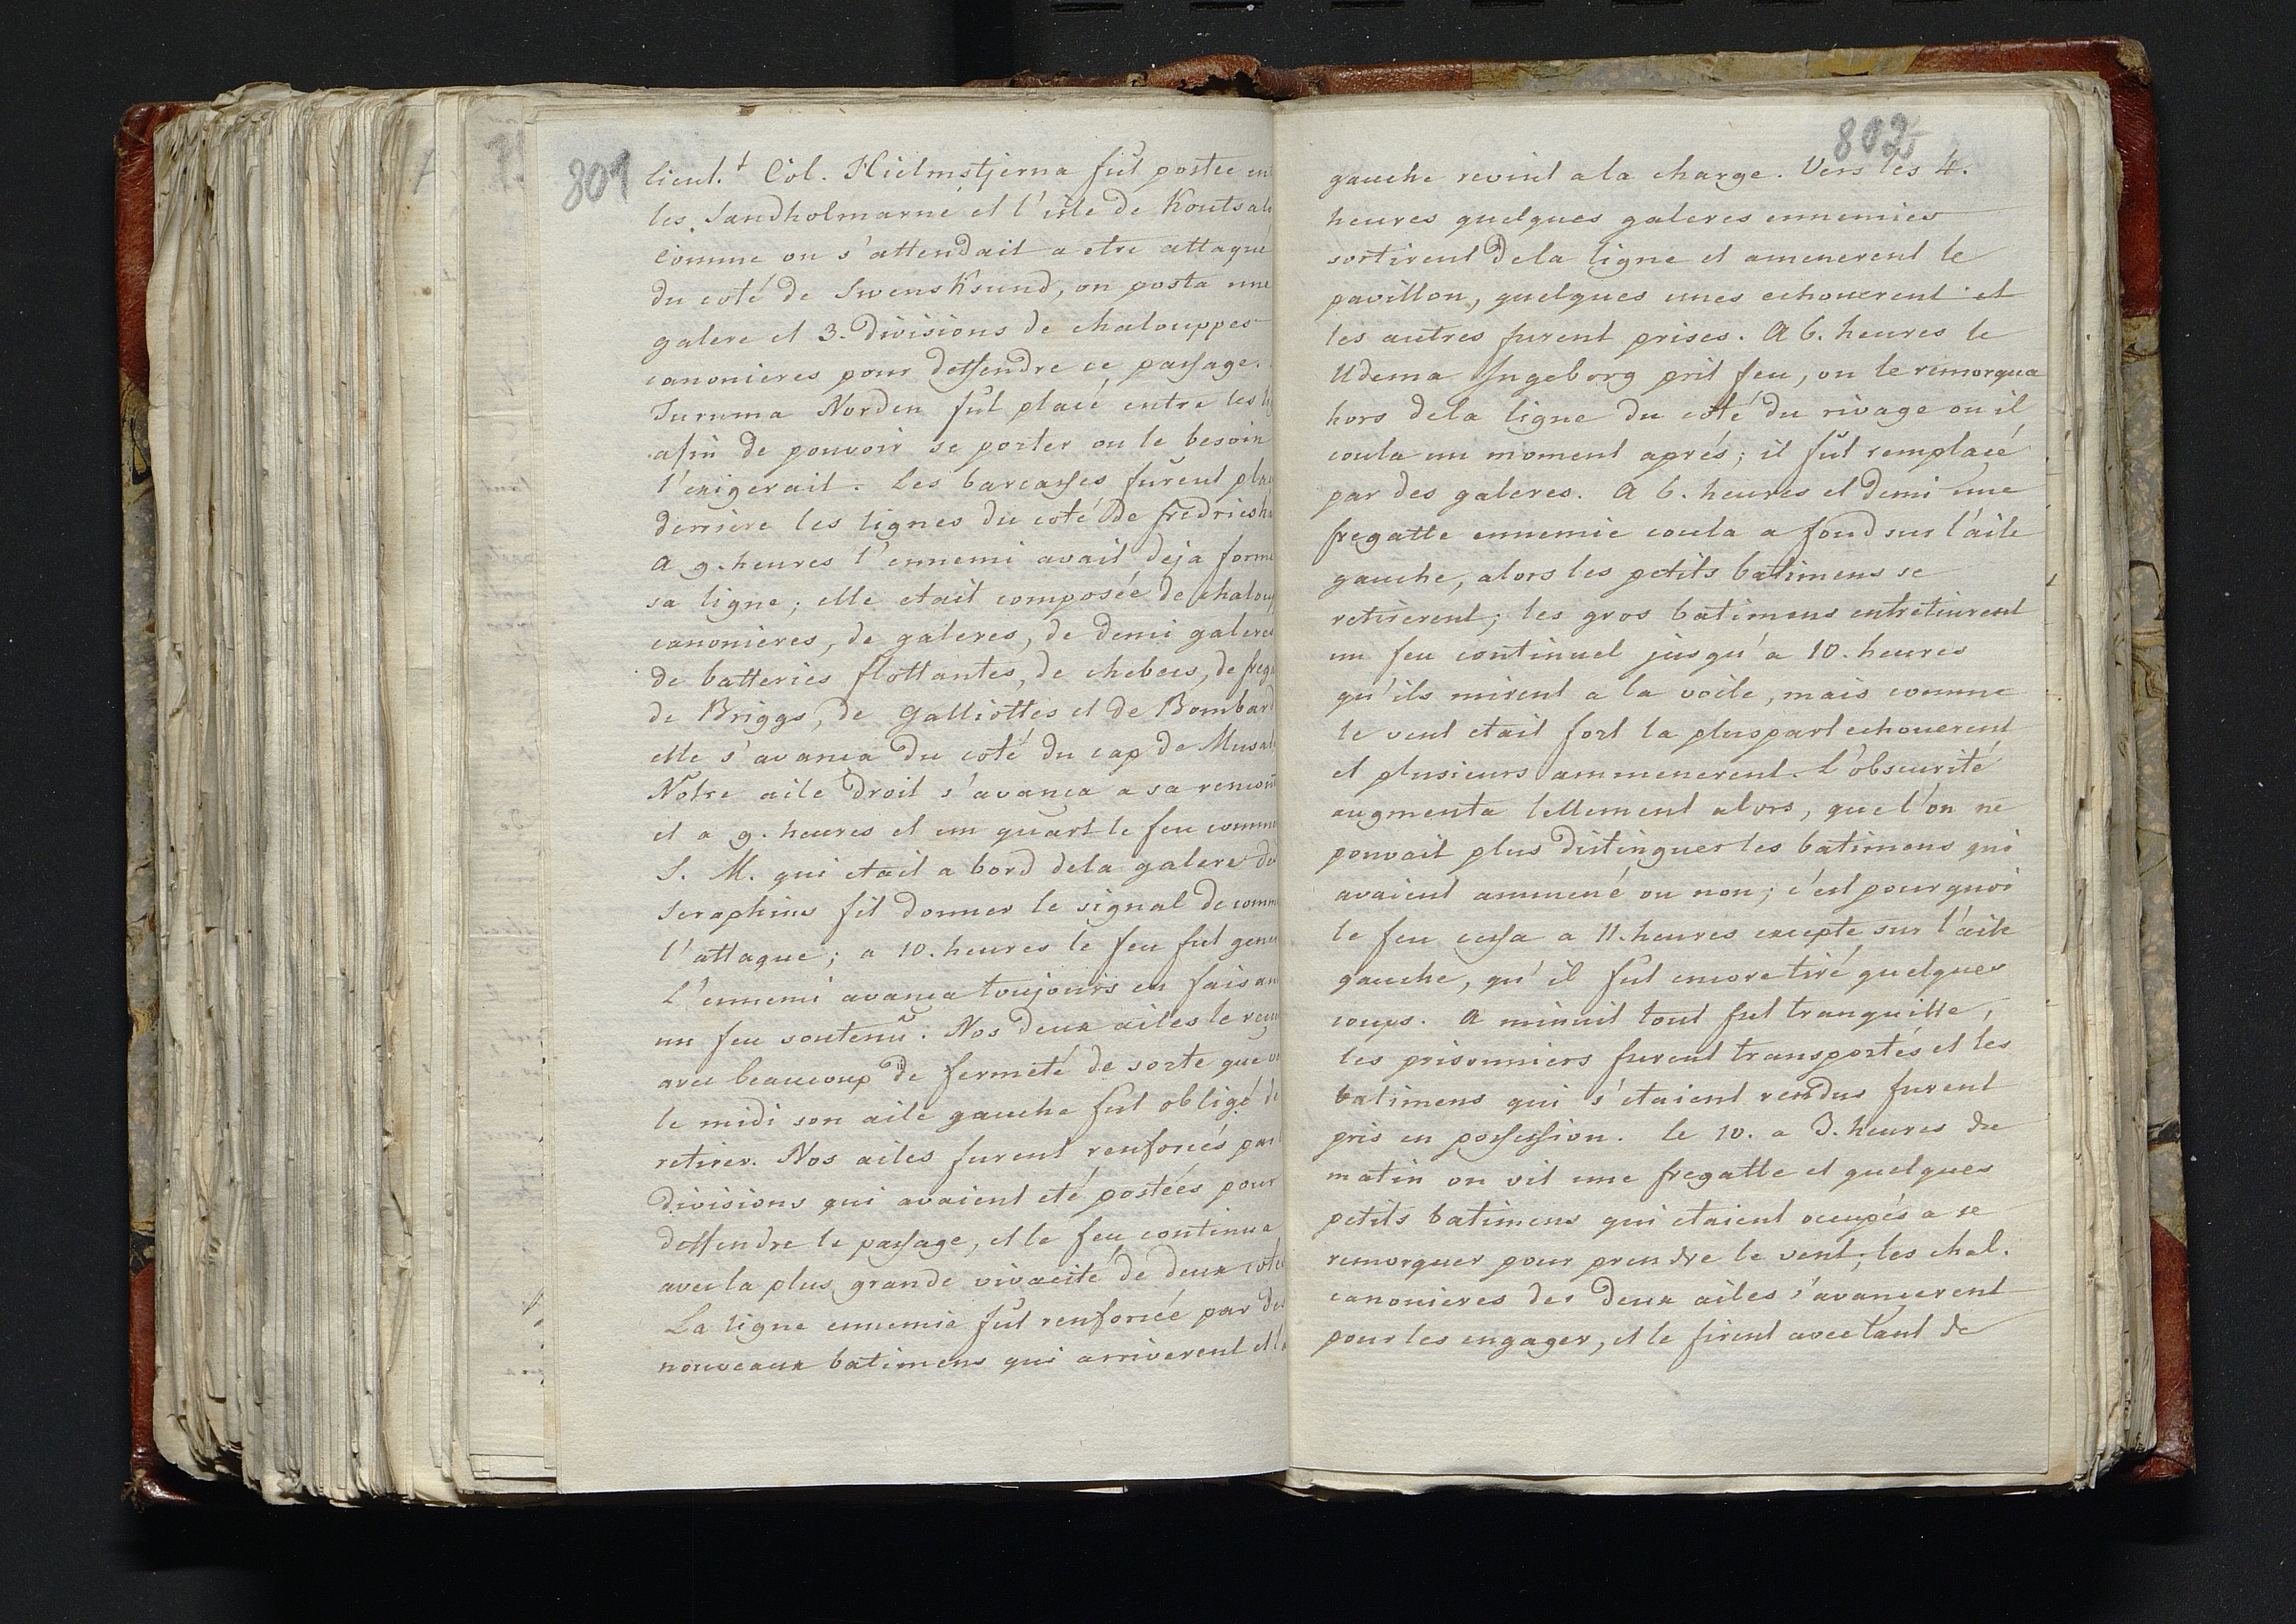 801
lieut.t Col. Hielmstjerna fut postee en
les Sandholmarne et l'isle de Koutsal
Comme on s'attendait a etre attaqué
du coté de Swensksund, on posta une
galere et 3. divisions de chalouppes
canonieres pour deffendre ce passage.
Turuma Norden fut placé entre les
afin de pouvoir se porter ou le besoin
l'exigerait. Les barcasses furent plac
derriere les lignes du coté de fredricsh
A 9. heures l'ennemi avait deja formé
sa ligne; elle etait composée de chaloup
canonieres, de galeres, de demi galeres
de batteries flottantes, de chebecs, de frega
de Briggs, de Galliottes et de Bombard
elle s'avanca du coté du cap de Musal
Notre aile droit s'avança a sa rencont
et a 9. heures et un quart le feu comme
S. M. qui etait a bord dela galere de
Seraphins fit donner le signal de comm
l'attaque; a 10. heures le feu fut gene
L'ennemi avança toujours en faisan
un feu soutenu. Nos deux ailes le reçu
avec beaucoup de fermeté de sorte que v
le midi son aile gauche fut obligé de
retirer. Nos ailes furent renforcés par
divisions qui avaient eté postées pour
deffendre le passage, et le feu continua
avec la plus grande vivacité de deux cotes
La ligne ennemie fut renforcée par des
nouveaux batimens qui arriverent et l
802
gauche revint a la charge. Vers les 4.
heures quelques galeres ennemies
sortirent dela ligne et amenerent le
pavillon, quelques unes echouerent et
les autres furent prises. A 6. heures le
Udema Ingeborg prit feu, on le remorqua
hors dela ligne du coté du rivage ou il
coula un moment aprés; il fut remplacé
par des galeres. A 6. heures et demi une
fregatte ennemie coula a fond sur l'aile
gauche, alors les petits batimens se
retirerent; les gros batimens entretinrent
un feu continuel jusqu'a 10. heures
qu'ils mirent a la voile, mais comme
le vent etait fort la pluspart echouerent
et plusieurs ammenerent. L'obscurité
augmenta tellement alors, que l'on ne
pouvait plus distinguer les batimens qui
avaient ammené ou non; c'est pourquoi
le feu cessa a 11. heures excepte sur l'aile
gauche, qu'il fut encore tiré quelques
coups. A minuit tout fut tranquille,
les prisonniers furent transportés et les
batimens qui s'etaient rendus furent
pris en possession. Le 10. a 3. heures du
matin on vit une fregatte et quelques
petits batimens qui etaient occupés a se
remorquer pour prendre le vent; les chal.
canonieres des deux ailes s'avancerent
pour les engager, et le firent avec tant de